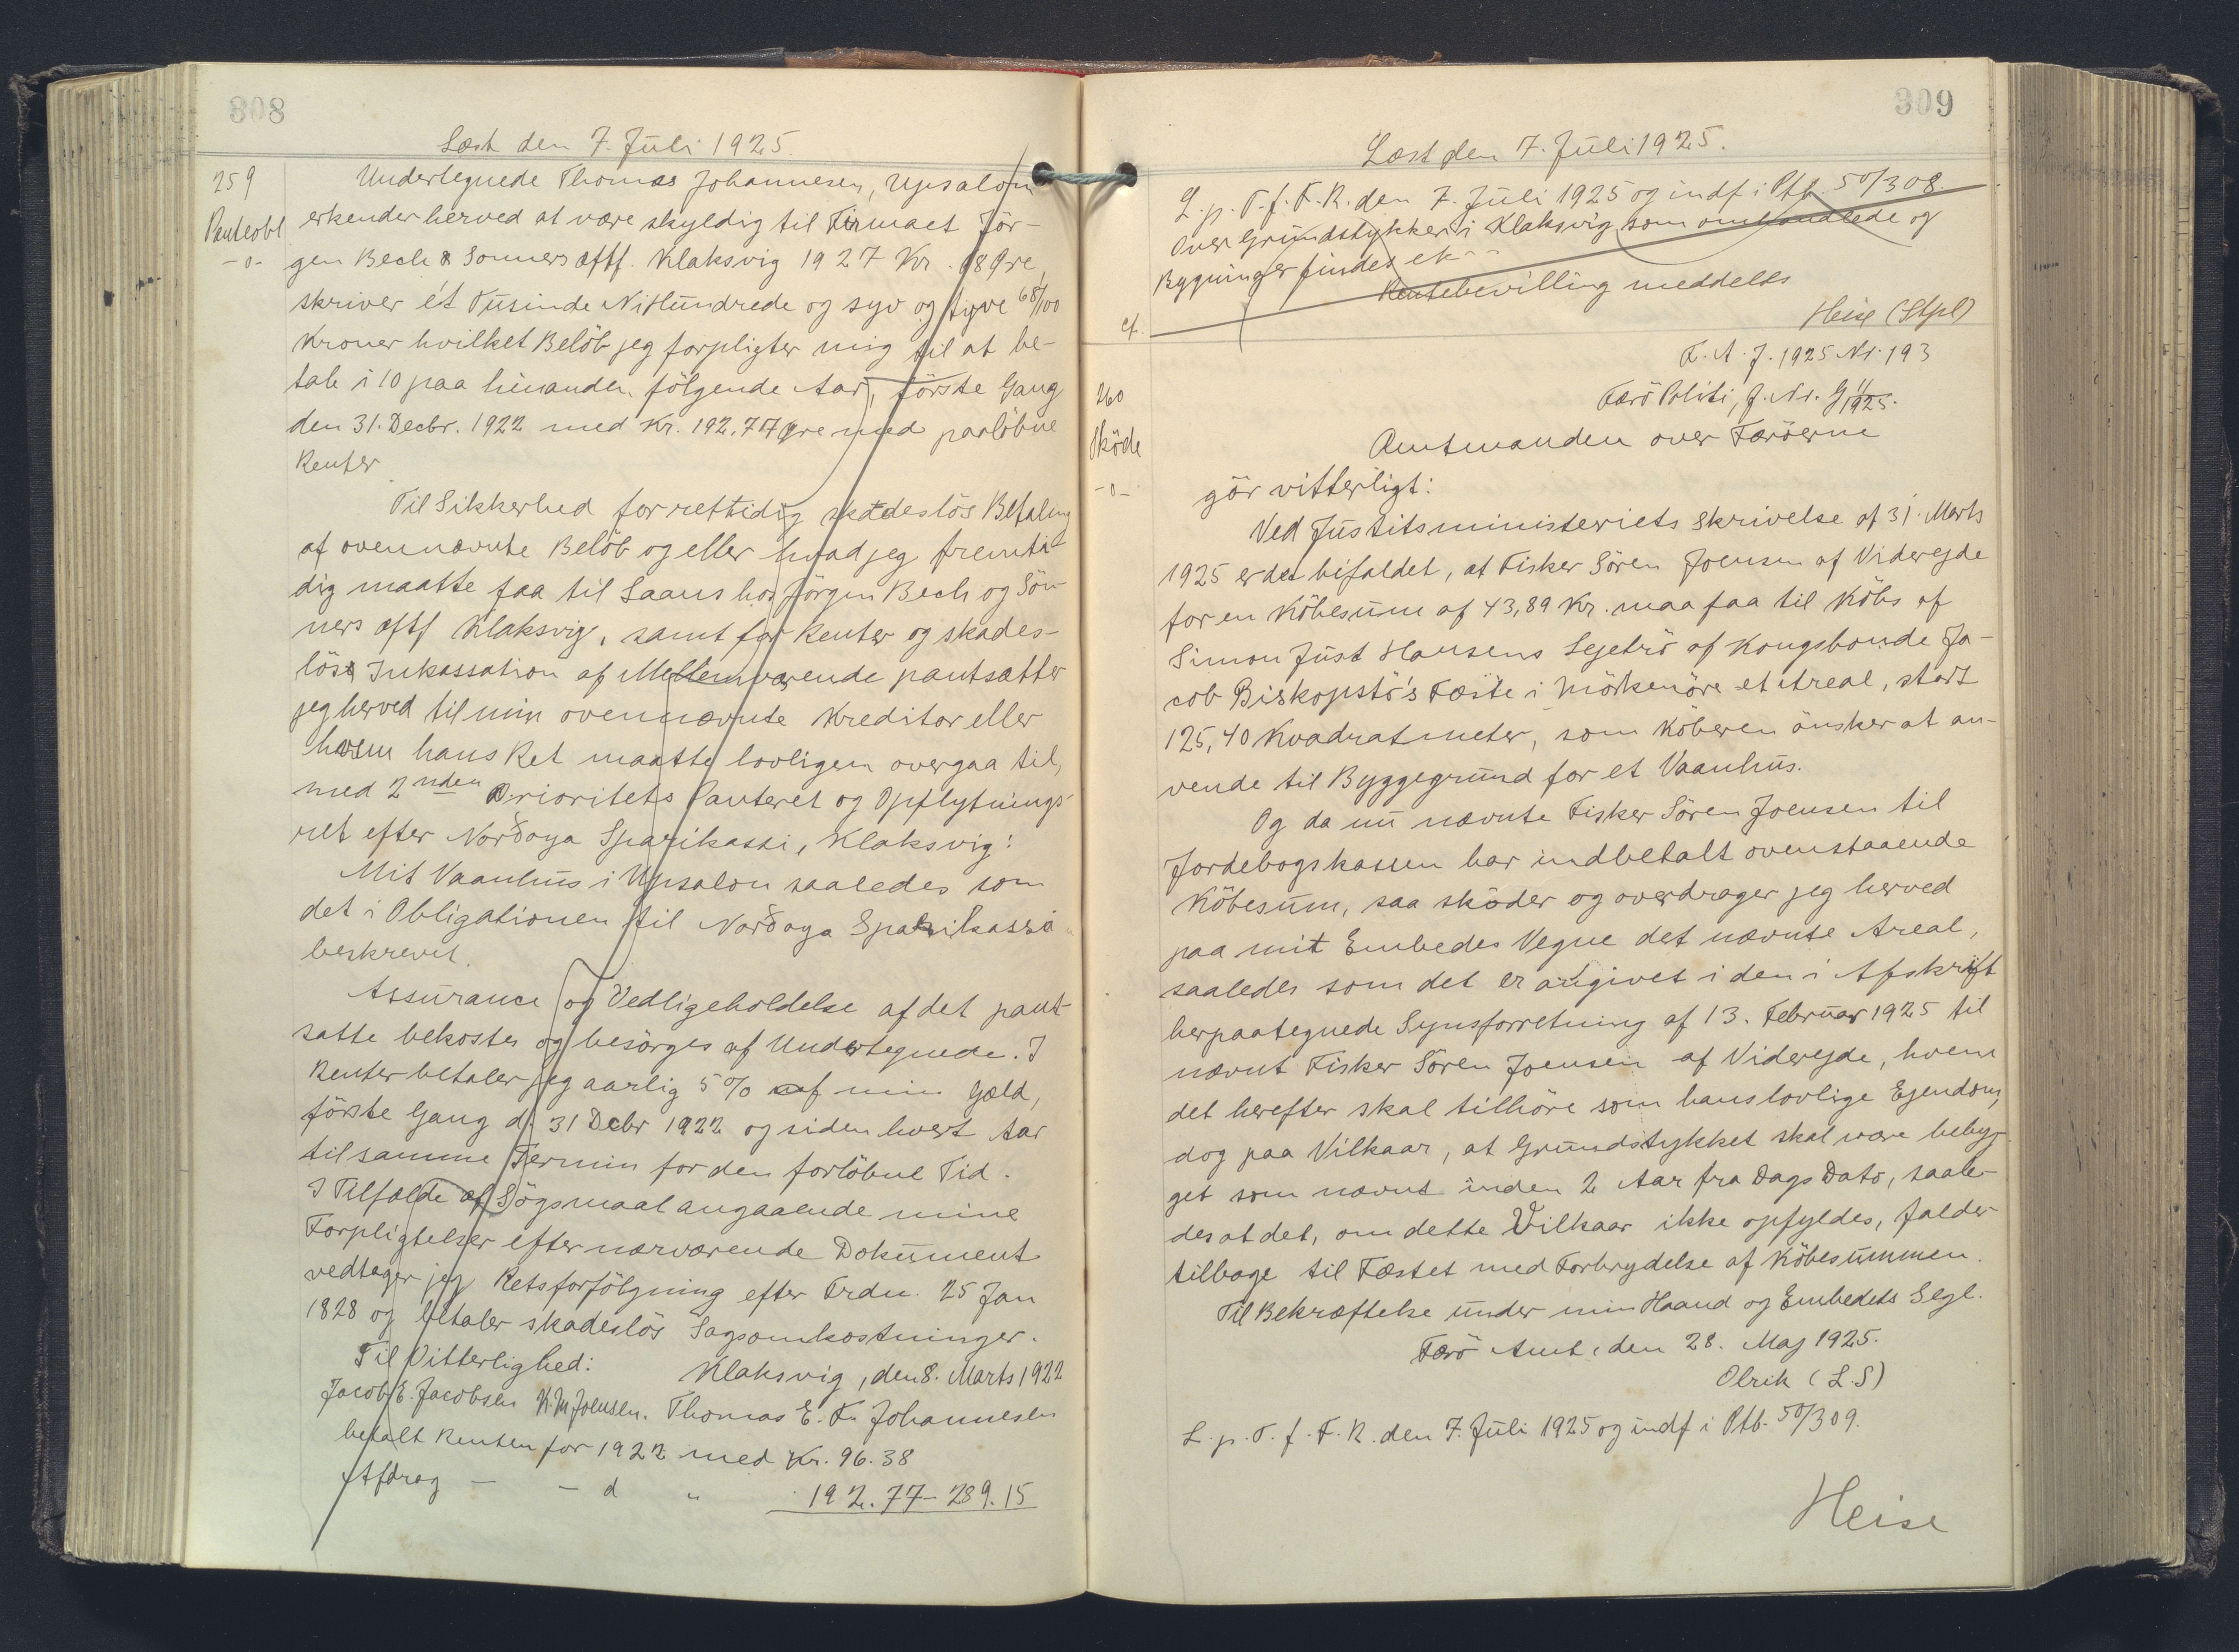 308
Læst den 7. Juli 1925.
259
Panteobl
-0-
Undertegnede Thomas Johannesen, Upsalon
erkender herved at være skyldig til Firmaet Jör-
gen Bech & Sonners eftf. Klaksvig 1927 Kr. 68 Øre,
skriver ét Tusinde Ni Hundrede og syv og tyve 68/100
Kroner hvilket Belöb jeg forpligter mig til at be-
tale i 10 paa hinanden fölgende Aar, förste Gang
den 31. Decbr. 1922 med Kr. 192,77 Øre med paalöbne
Renter
Til Sikkerhed for rettidig skadeslös Betaling
af ovennævnte Belöb og eller hvad jeg fremti-
dig maatte faa til Laans hos Jörgen Bech og Sön-
ners eftf Klaksvig, samt for Renter og skades-
lös Inkassation af Mellemværende pantsætter
jeg herved til min ovennævnte Kreditor eller
hvem hans Ret maatte lovligen overgaa til,
med 2nden Prioritets Panteret og Opflytnings-
ret efter Norðoya Sparikassi, Klaksvig:
Mit Vaanhus i Upsalon saaledes som
det i Obligationen til Norðoya Sparikassi
beskrevet.
Assurance og Vedligeholdelse af det pant-
satte bekostes og besörges af Undertegnede. I
Renter betaler jeg aarlig 5 % af min Gæld,
förste Gang d. 31 Decbr 1922 og siden hvert Aar
til samme Termin for den forlöbne Tid.
I Tilfælde af Sögsmaal angaaende mine
Forpligtelser efter nærværende Dokument
vedtager jeg Retsforfölgning efter Frdn. 25 Jan
1828 og betaler skadeslös Sagsomkostninger.
Til Vitterlighed: Klaksvig, den 8. Marts 1922
Jacob E. Jacobsen K. M. Joensen. Thomas E. Fr. Johannesen
betalt Renten for 1922 med Kr. 96.38
Afdrag - - d " 192.77 - 289.15
309
Læst den 7. Juli 1925.
L. p. T. f. F. R. den 7. Juli 1925 og indf i Ptb. 50/308.
Over Grundstykker i Klaksvig som omhandlede og
Bygninger findes ek--
Rentebevilling meddelts
Heise (Stpl)
cf.
F. A. J. 1925 Nr. 193
Færö Politi, J. Nr. G 11/1925.
260
Sköde
-0-
Amtmanden over Færöerne
gör vitterligt:
Ved Justitsministeriets Skrivelse af 31. Marts
1925 er det bifaldet, at Fisker Sören Joensen af Viderejde
for en Köbesum af 43,89 Kr. maa faa til Köbs af
Simon Just Hansens Lejetrö af Kongsbonde Ja-
cob Biskopstö's Fæste i Mörkenöre et Areal, stort
125,40 Kvadratmeter, som Köberen önsker at an-
vende til Byggegrund for et Vaanhus.
Og da nu nævnte Fisker Sören Joensen til
Jordebogskassen har indbetalt ovenstaaende
Köbesum, saa sköder og overdrager jeg herved
paa mit Embedes Vegne det nævnte Areal,
saaledes som det er angivet i den i Afskrift
herpaategnede Synsforretning af 13. Februar 1925 til
nævnt Fisker Sören Joensen af Viderejde, hvem
det herefter skal tilhöre som hans lovlige Ejendom,
dog paa Vilkaar, at Grundstykket skal være bebyg-
get som nævnt inden 2 Aar fra Dags Dato, saale-
des at det, om dette Vilkaar ikke opfyldes, falder
tilbage til Fæstet med Forbrydelse af Köbesummen.
Til Bekræftelse under min Haand og Embedets Segl.
Færö Amt, den 28. Maj 1925.
Olrik (L.S)
L. p. T. f. F. R. den 7. Juli 1925 og indf i Ptb. 50/309.
Heise